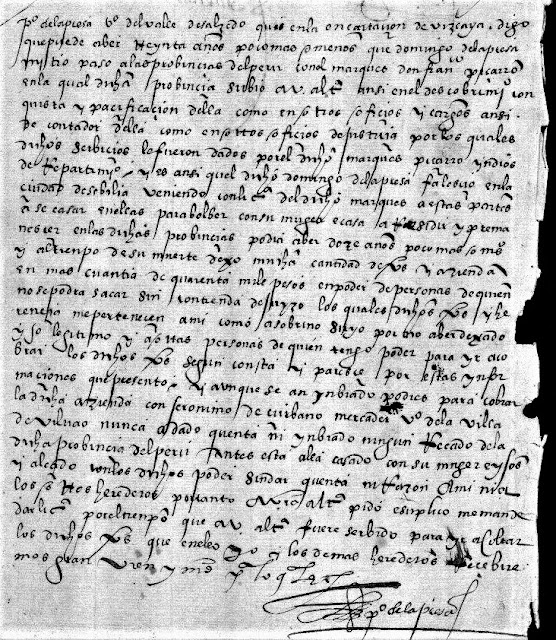 pº de la piesa vº del valle de salzedo que es en la encartaçion de vizcaya digo
que puede aber treynta años poco mas o menos que domingo de la piesa
mi tio paso a las probincias del peru con el marques don franco piçarro
en la qual dicha probincia sirbio a v. altª ansi en el descobrimiº con
quista y paçificaçion della como en otros ofiçios y cargos ansi
de contador della como en otros ofiçios de justiçia por los quales
dichos serbiçios le fueron dados por el dicho marques piçarro yndios
de Repartimiº y es ansi quel dicho domingo de la piesa falesçio en la
ciudad de sebilla veniendo con liçª del dicho marques a estas partes
a se casar en ellas para bolber con su muger e casa a Residir y perma
nesçer en las dichas probincias podia aber doze años poco mas o mºs
y al tienpo de su muerte dexo mucha cantidad de xºs y azienda
en mas cuantia de quarenta mile pesos en poder de personas de quien
no se podra sacar sin contienda de juyzio los quales dichos xºs y he
rençia me perteneçen a mi como a sobrino suyo por no aber dexado
yjo legitimo y a otras personas de quien tengo poder para yr a co
brar los dichos xºs segun consta y pareçe por estas ynfor
maçiones que presento y aunque se an ynbiado poderes para cobrar
la dicha azienda con Jeronimo de çurbano mercader vº de la villa
de viluao nunca a dado quenta ni ynbiado ningun Recado de la
dicha probincia del peru antes esta alla casado con su muger e yjos
y alçado con los dichos poder sin dar quenta ni Razon a mi ni a
los otros herederos por tanto a v. altª pido e suplico me mande
dar liçª por el tienpo que a v. altª fuere serbido para yr a cobrar
los dichos xºs que en ello yo y los demas herederos Recebire
mos gran vien y md
pº de la piesa